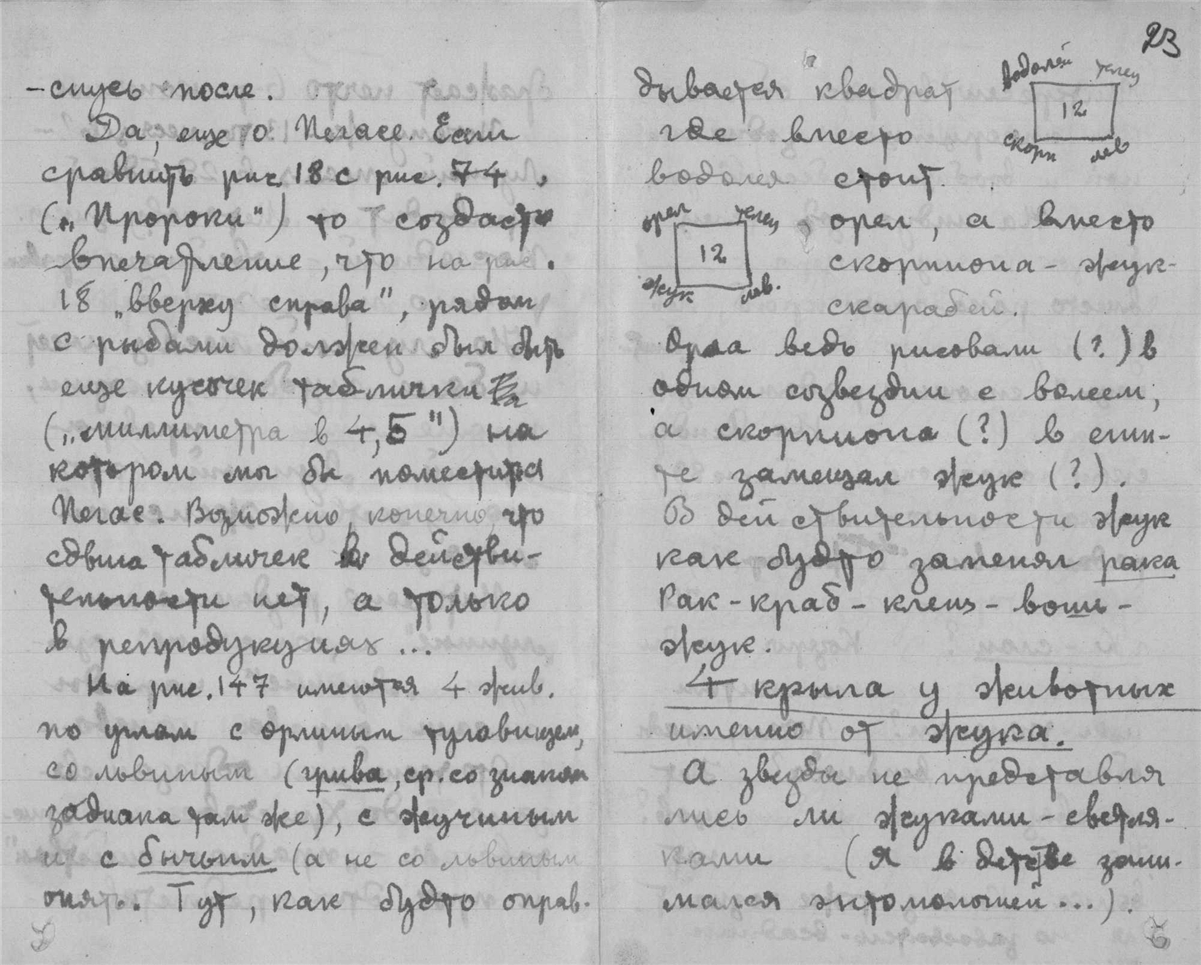 -снусь после.
Да, еще о Пегасе. Если
сравнить рис. 18 с рис. 74
("Пророки") то создастся
впечатление, что на рис.
18 "вверху справа", рядом
с рыбами должен был быть
еще кусочек таблички
("миллиметра в 4,5") на
котором мы бы поместился
Пегас. Возможно, конечно, что
сдвига табличек в действи-
тельности нет, а только
в репродукциях...
На рис. 147 имеются 4 жив.
по углам с орлиным туловищем,
со львиным (грива, ср. со знаком
задиака там же), с жучиным
и с бычьим (а не со львиным
опять. Тут, как будто оправ-
23
дывается квадрат
где вместо
водолея стоит
орел, а вместо
скорпиона - жук-
скарабей.
водолей телец
12
скорп лев
орел телец
12
жук лев.
Орла ведь рисовали (?) в
одном созвездии с волеем,
а скорпиона (?) в егип-
те замещал жук (?).
В действительности жук
как будто заменял рака
Рак - краб - клещ - вошь -
жук.
4 крыла у животных
именно от жука.
А звезды не представля
лись ли жуками - светля-
ками (я в детстве зани-
мался энтомологией...).